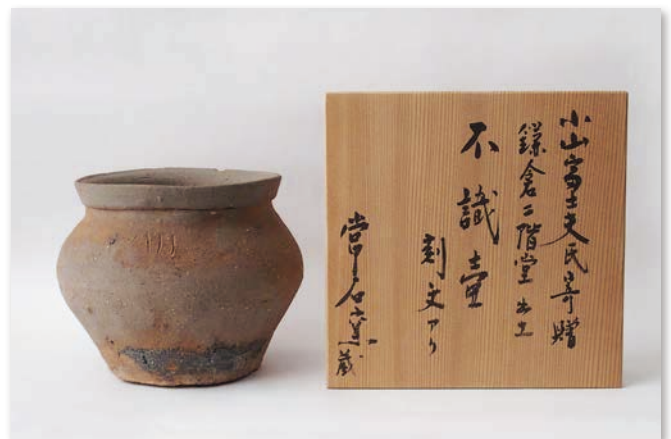 小山富士夫氏寄贈
鎌倉二階堂出土
不識壺
刻文アリ
常石窯蔵